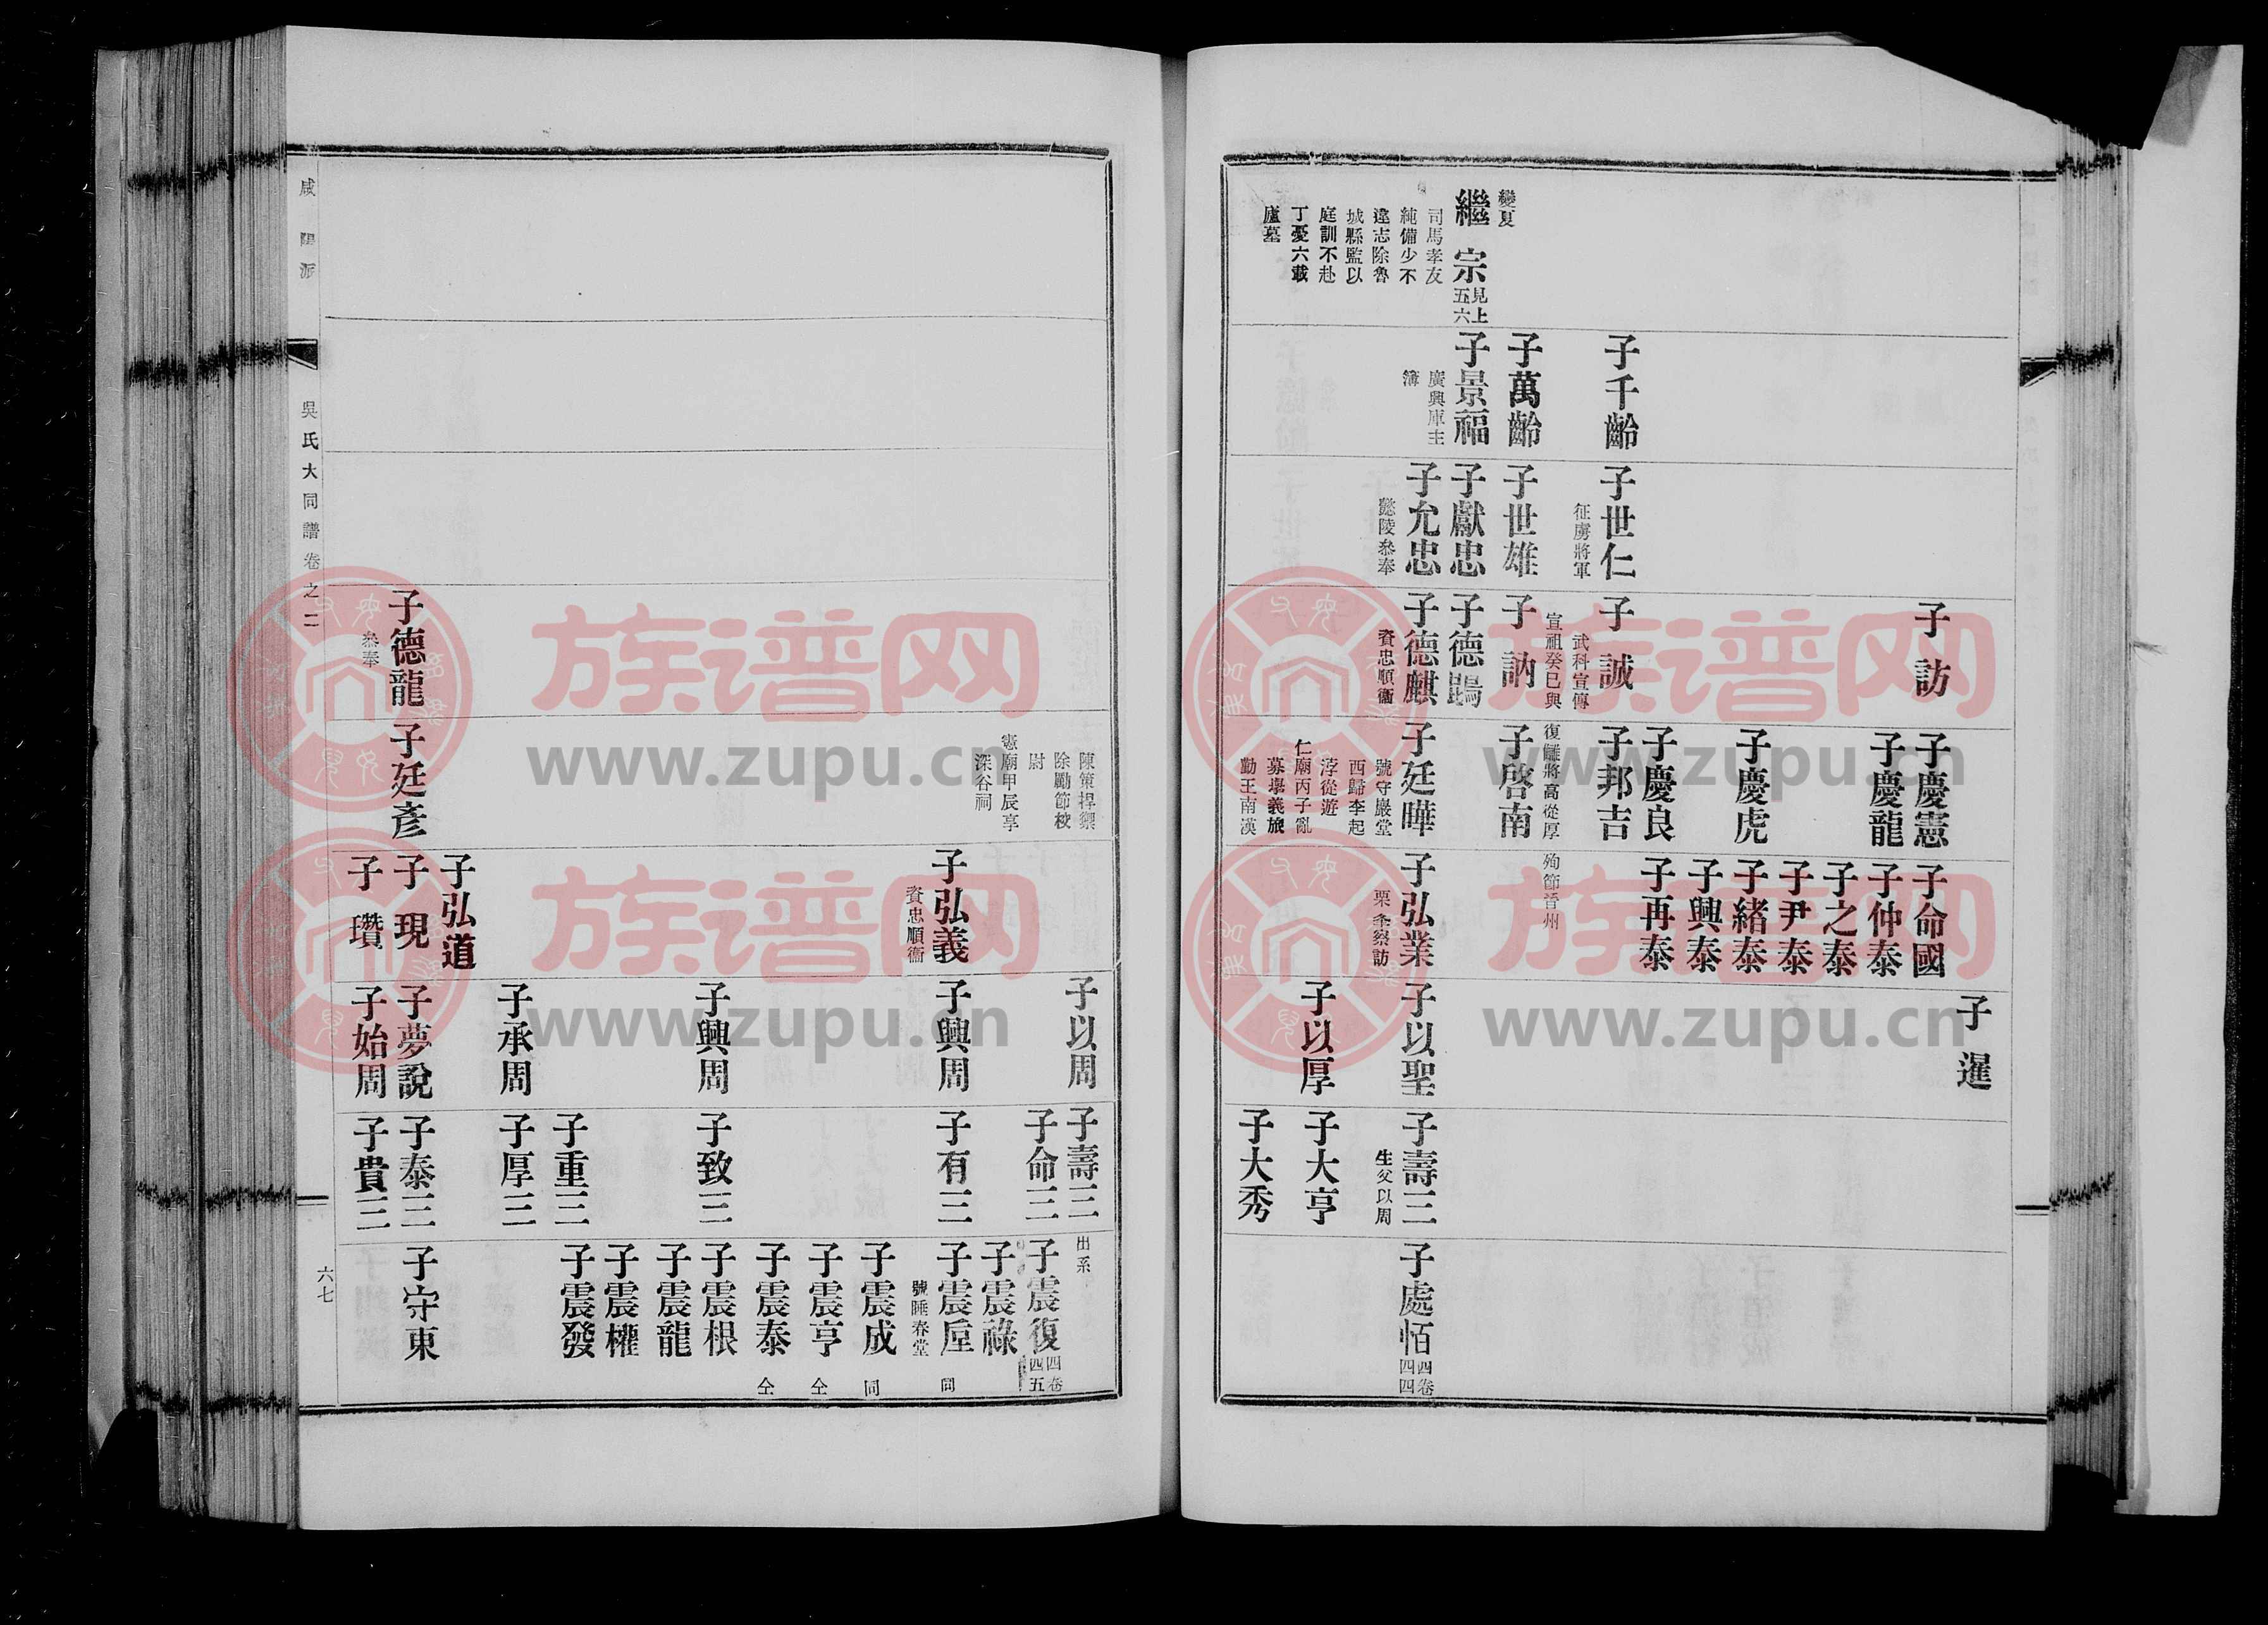 變夏
繼宗
見上
五六
司馬孝友
純備少不
違志除魯
城縣監以
庭訓不赴
丁憂六載
廬墓
子千齡
子萬齡
子景福
廣興庫主
簿
子世仁
征虜將軍
子世雄
子獻忠
子允忠
懿陵叅奉
子訪
子誠
武科宣傳
宣祖癸巳與
子訥
子德鵾
子德麒
資忠順衞
子慶憲
子慶龍
子慶虎
子慶良
子邦吉
復讎將高從厚
子啓南
子廷曄
號守巖堂
西歸李起
浡從遊
仁廟丙子亂
募擧義旅
勤王南漢
子命國
子仲泰
子之泰
子尹泰
子緒泰
子興泰
子再泰
殉節晋州
子弘業
栗峯察訪
子暹
子以聖
子以厚
子壽三
生父以周
子大亨
子大秀
子處恬
四卷
四四
陳策捍禦
除勵節校
尉
憲廟甲辰享
深谷祠
子德龍
叅奉
子廷彥
子弘義
資忠順衞
子弘道
子現
子瓚
子以周
子興周
子興周
子承周
子夢說
子始周
子壽三
子命三
子有三
子致三
子重三
子厚三
子泰三
子貴三
出系
子震復
四卷
四五
子震祿
子震垕
號睡春堂
同
子震成
同
子震亨
仝
子震泰
仝
子震根
子震龍
子震權
子震發
子守東
咸陽派
吳氏大同譜卷之二
六七
族谱网
www.zupu.cn
族谱网
www.zupu.cn
族谱网
www.zupu.cn
族谱网
www.zupu.cn